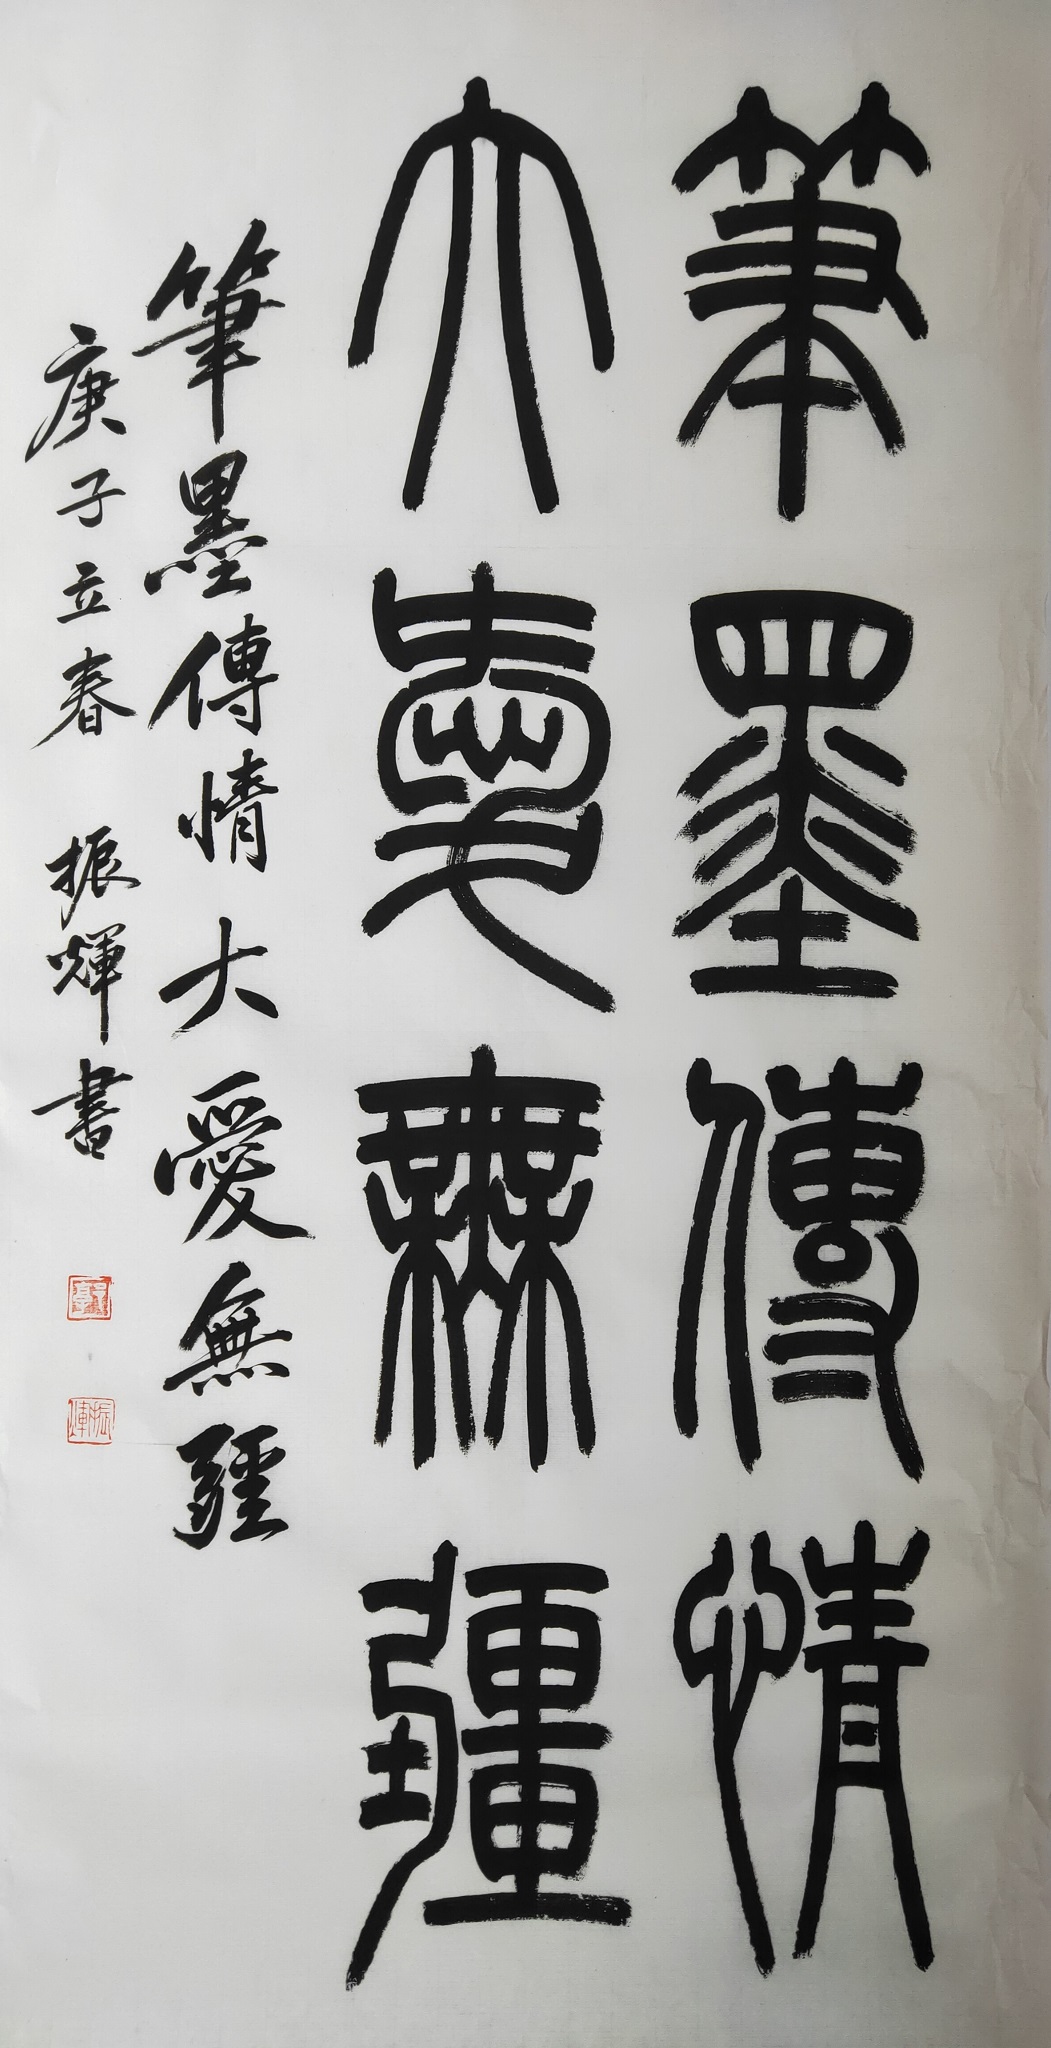 筆墨傳情
大愛無疆
筆墨傳情大愛無疆
庚子立春 振輝書
振輝